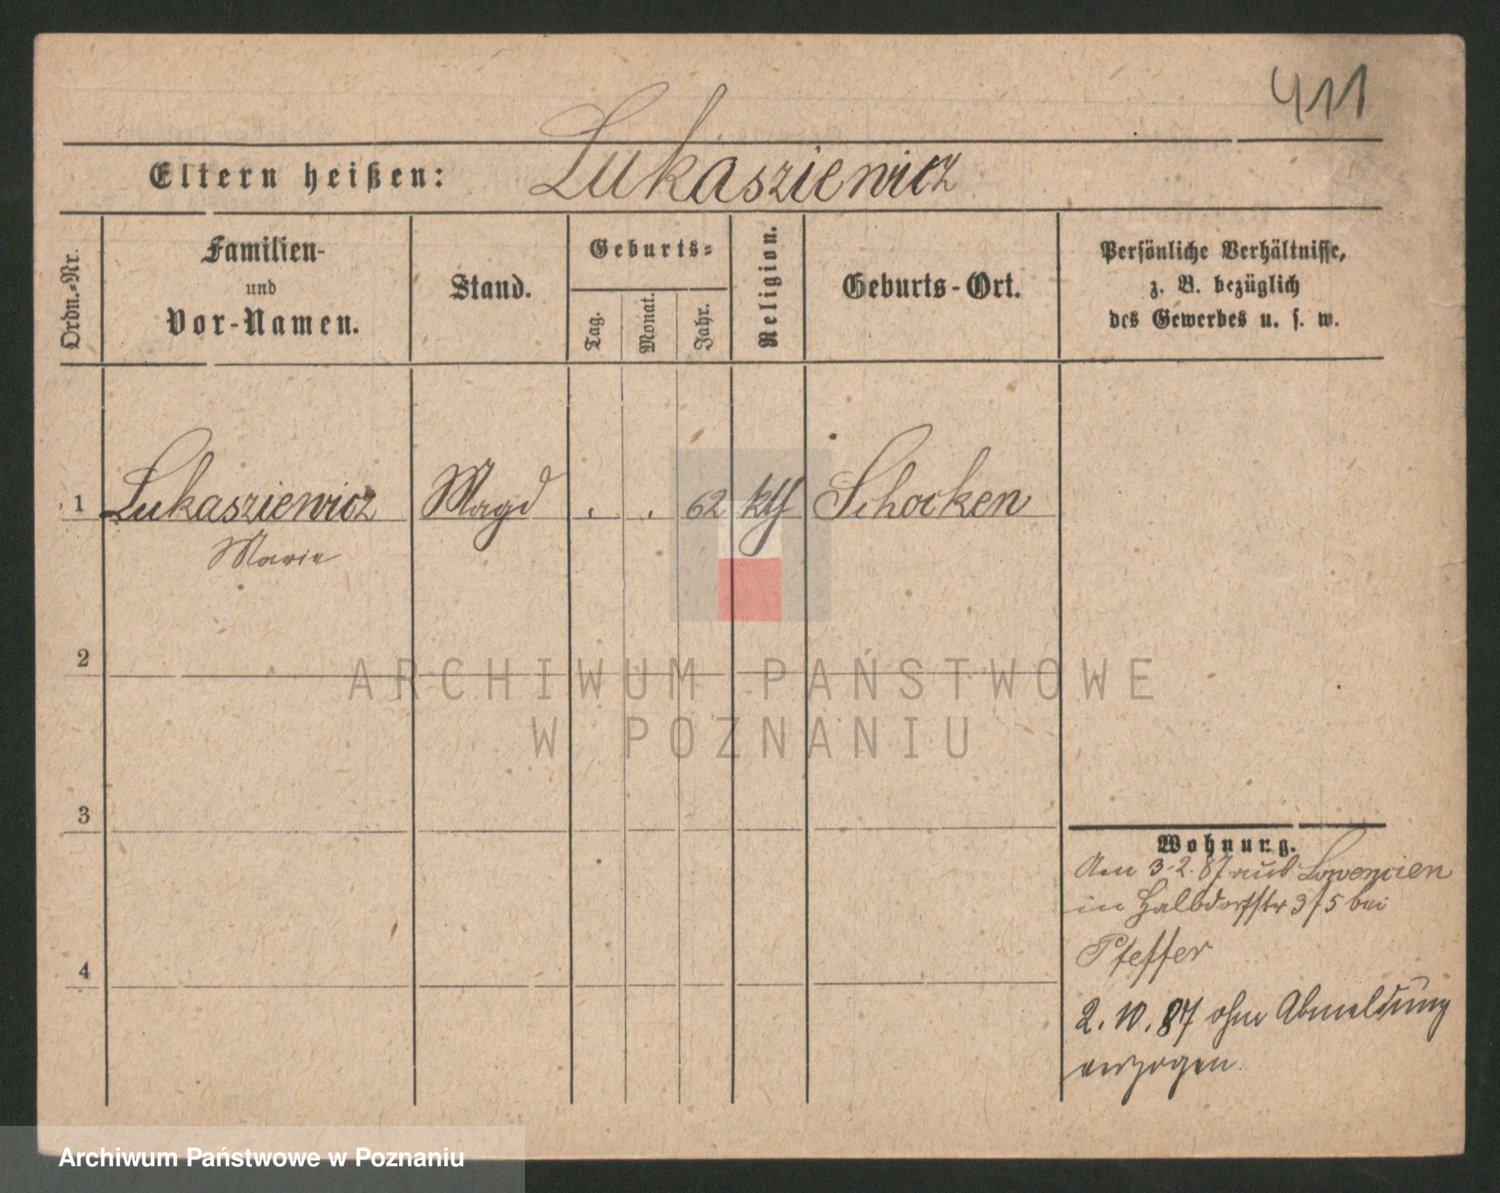 411
Eltern heißen: Lukasziewicz
Ordn.-Nr.
Familien-
und
Vor-Namen.
Stand.
Geburts-
Tag.
Monat.
Jahr.
Religion.
Geburts-Ort.
Persönliche Verhältnisse,
z. B. bezüglich
des Gewerbes u. s. w.
1 Lukasziewicz Magd . . 62 kth Schocken
Marie
2
ARCHIWUM PAŃSTWOWE
W POZNANIU
3
Wohnung.
Am 3.2.87 aus
in Halbdorfstr 3/5 bei
Pfeffer
4
2.10.87 ohne Abmeldung
verzogen.
Archiwum Państwowe w Poznaniu